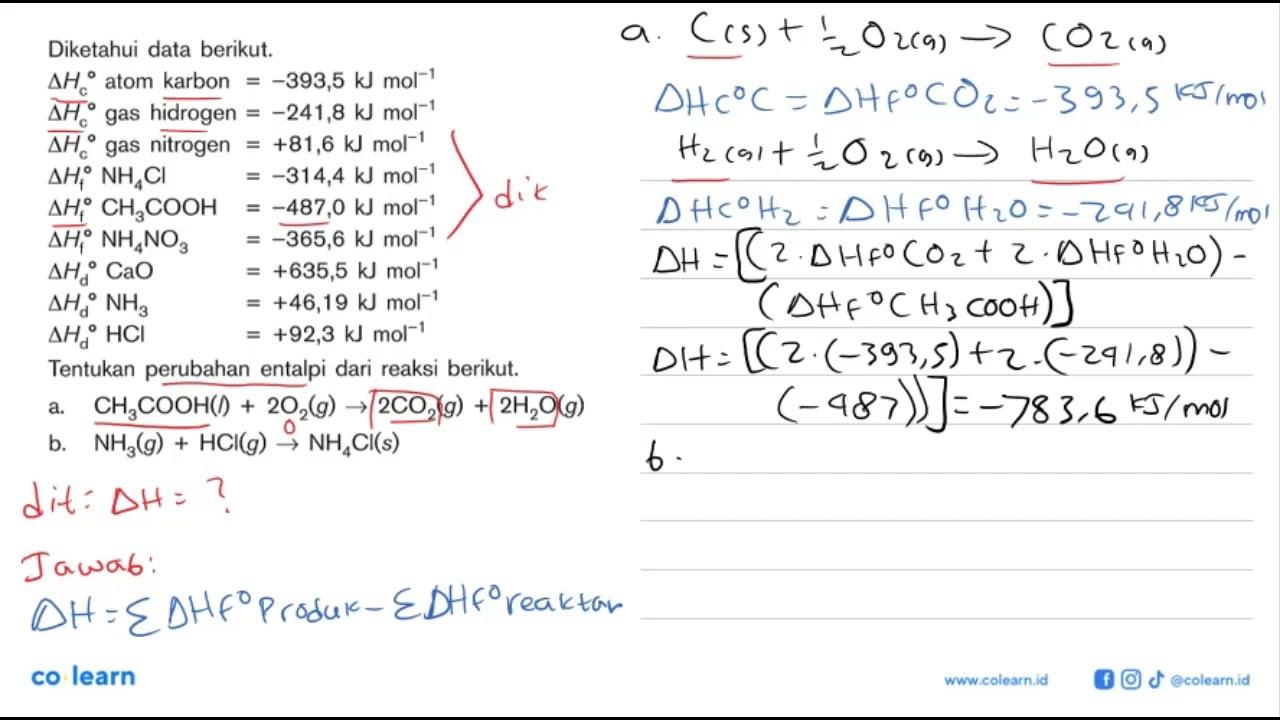 Diketahui data berikut.
ΔHc° atom karbon = –393,5 kJ mol⁻¹
ΔHc° gas hidrogen = –241,8 kJ mol⁻¹
ΔHc° gas nitrogen = +81,6 kJ mol⁻¹
ΔHf° NH₄Cl = –314,4 kJ mol⁻¹
ΔHf° CH₃COOH = –487,0 kJ mol⁻¹
ΔHf° NH₄NO₃ = –365,6 kJ mol⁻¹
ΔHd° CaO = +635,5 kJ mol⁻¹
ΔHd° NH₃ = +46,19 kJ mol⁻¹
ΔHd° HCl = +92,3 kJ mol⁻¹
dik
Tentukan perubahan entalpi dari reaksi berikut.
a. CH₃COOH(l) + 2O₂(g) → 2CO₂(g) + 2H₂O(g)
0
b. NH₃(g) + HCl(g) → NH₄Cl(s)
dit: ΔH = ?
Jawab:
ΔH = Σ ΔHf° Produk – Σ ΔHf° reaktan
a. C(s) + ½ O₂(g) → CO₂(g)
ΔHc°C = ΔHf°CO₂ = -393,5 KJ/mol
H₂(g) + ½ O₂(g) → H₂O(g)
ΔHc°H₂ = ΔHf°H₂O = -241,8 KJ/mol
ΔH = [(2·ΔHf°CO₂ + 2·ΔHf°H₂O) -
(ΔHf°CH₃COOH)]
ΔH = [(2·(-393,5) + 2·(-241,8)) -
(-487))] = -783,6 KJ/mol
b.
co learn
www.colearn.id
@colearn.id